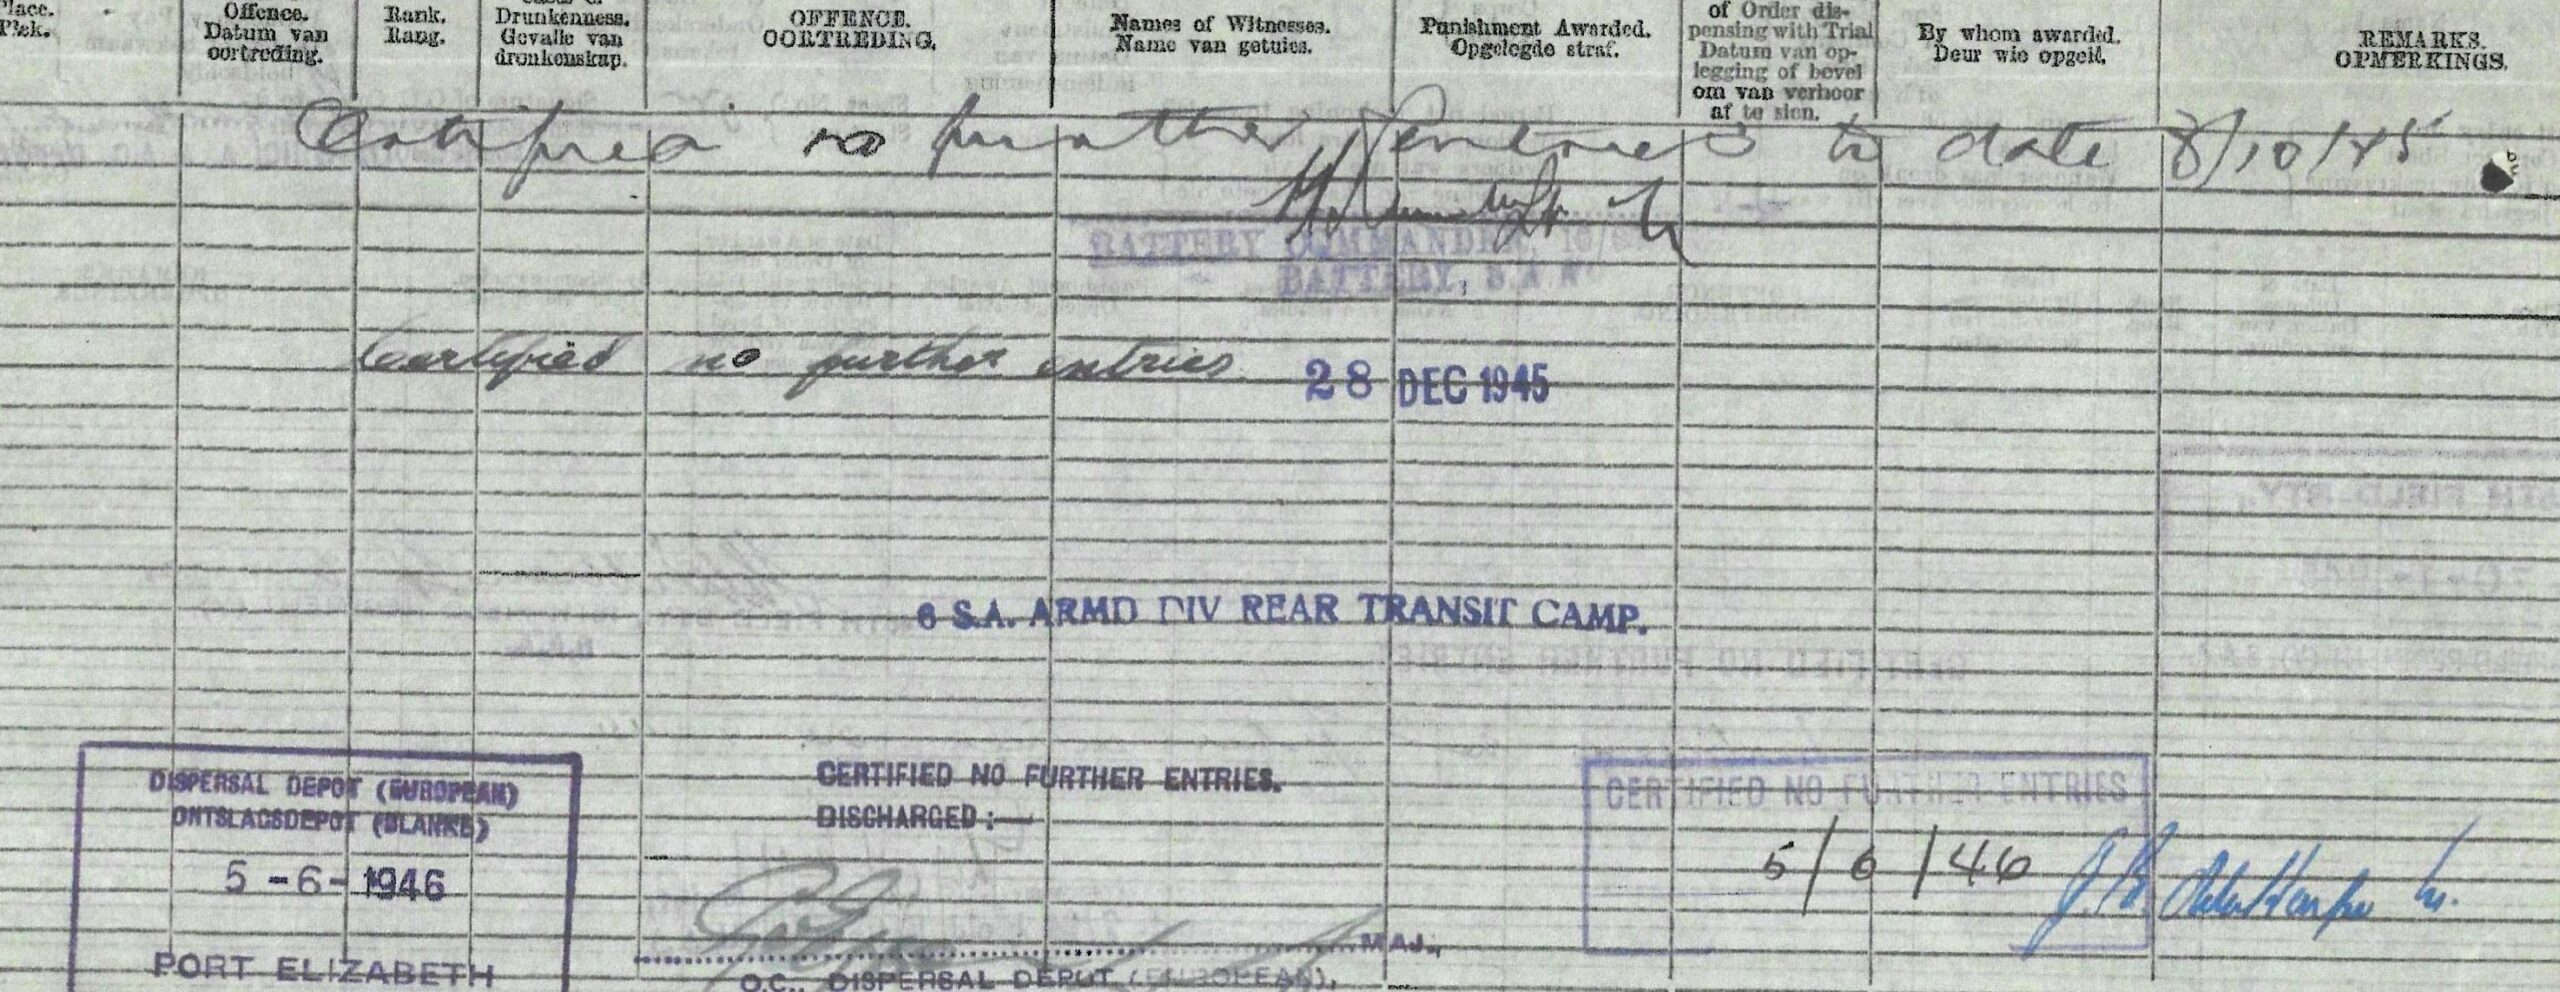 Place.
Plek.
Offence.
Datum van
oortreding.
Rank.
Rang.
Drunkenness.
Gevalle van
dronkenskap.
OFFENCE.
OORTREDING.
Names of Witnesses.
Name van getuies.
Punishment Awarded.
Opgelegde straf.
of Order dis-
pensing with Trial
Datum van op-
legging of bevel
om van verhoor
af te sien.
By whom awarded.
Deur wie opgelê.
REMARKS.
OPMERKINGS.
Certified no further entries to date 8/10/45
BATTERY COMMANDER,
BATTERY, S.A.
Certified no further entries 28 DEC 1945
6 S.A. ARMD DIV REAR TRANSIT CAMP.
DISPERSAL DEPOT (EUROPEAN)
ONTSLAGSDEPOT (BLANKE)
5-6-1946
PORT ELIZABETH
CERTIFIED NO FURTHER ENTRIES.
DISCHARGED:—
MAJ.,
O.C., DISPERSAL DEPOT (EUROPEAN),
CERTIFIED NO FURTHER ENTRIES
5/6/46